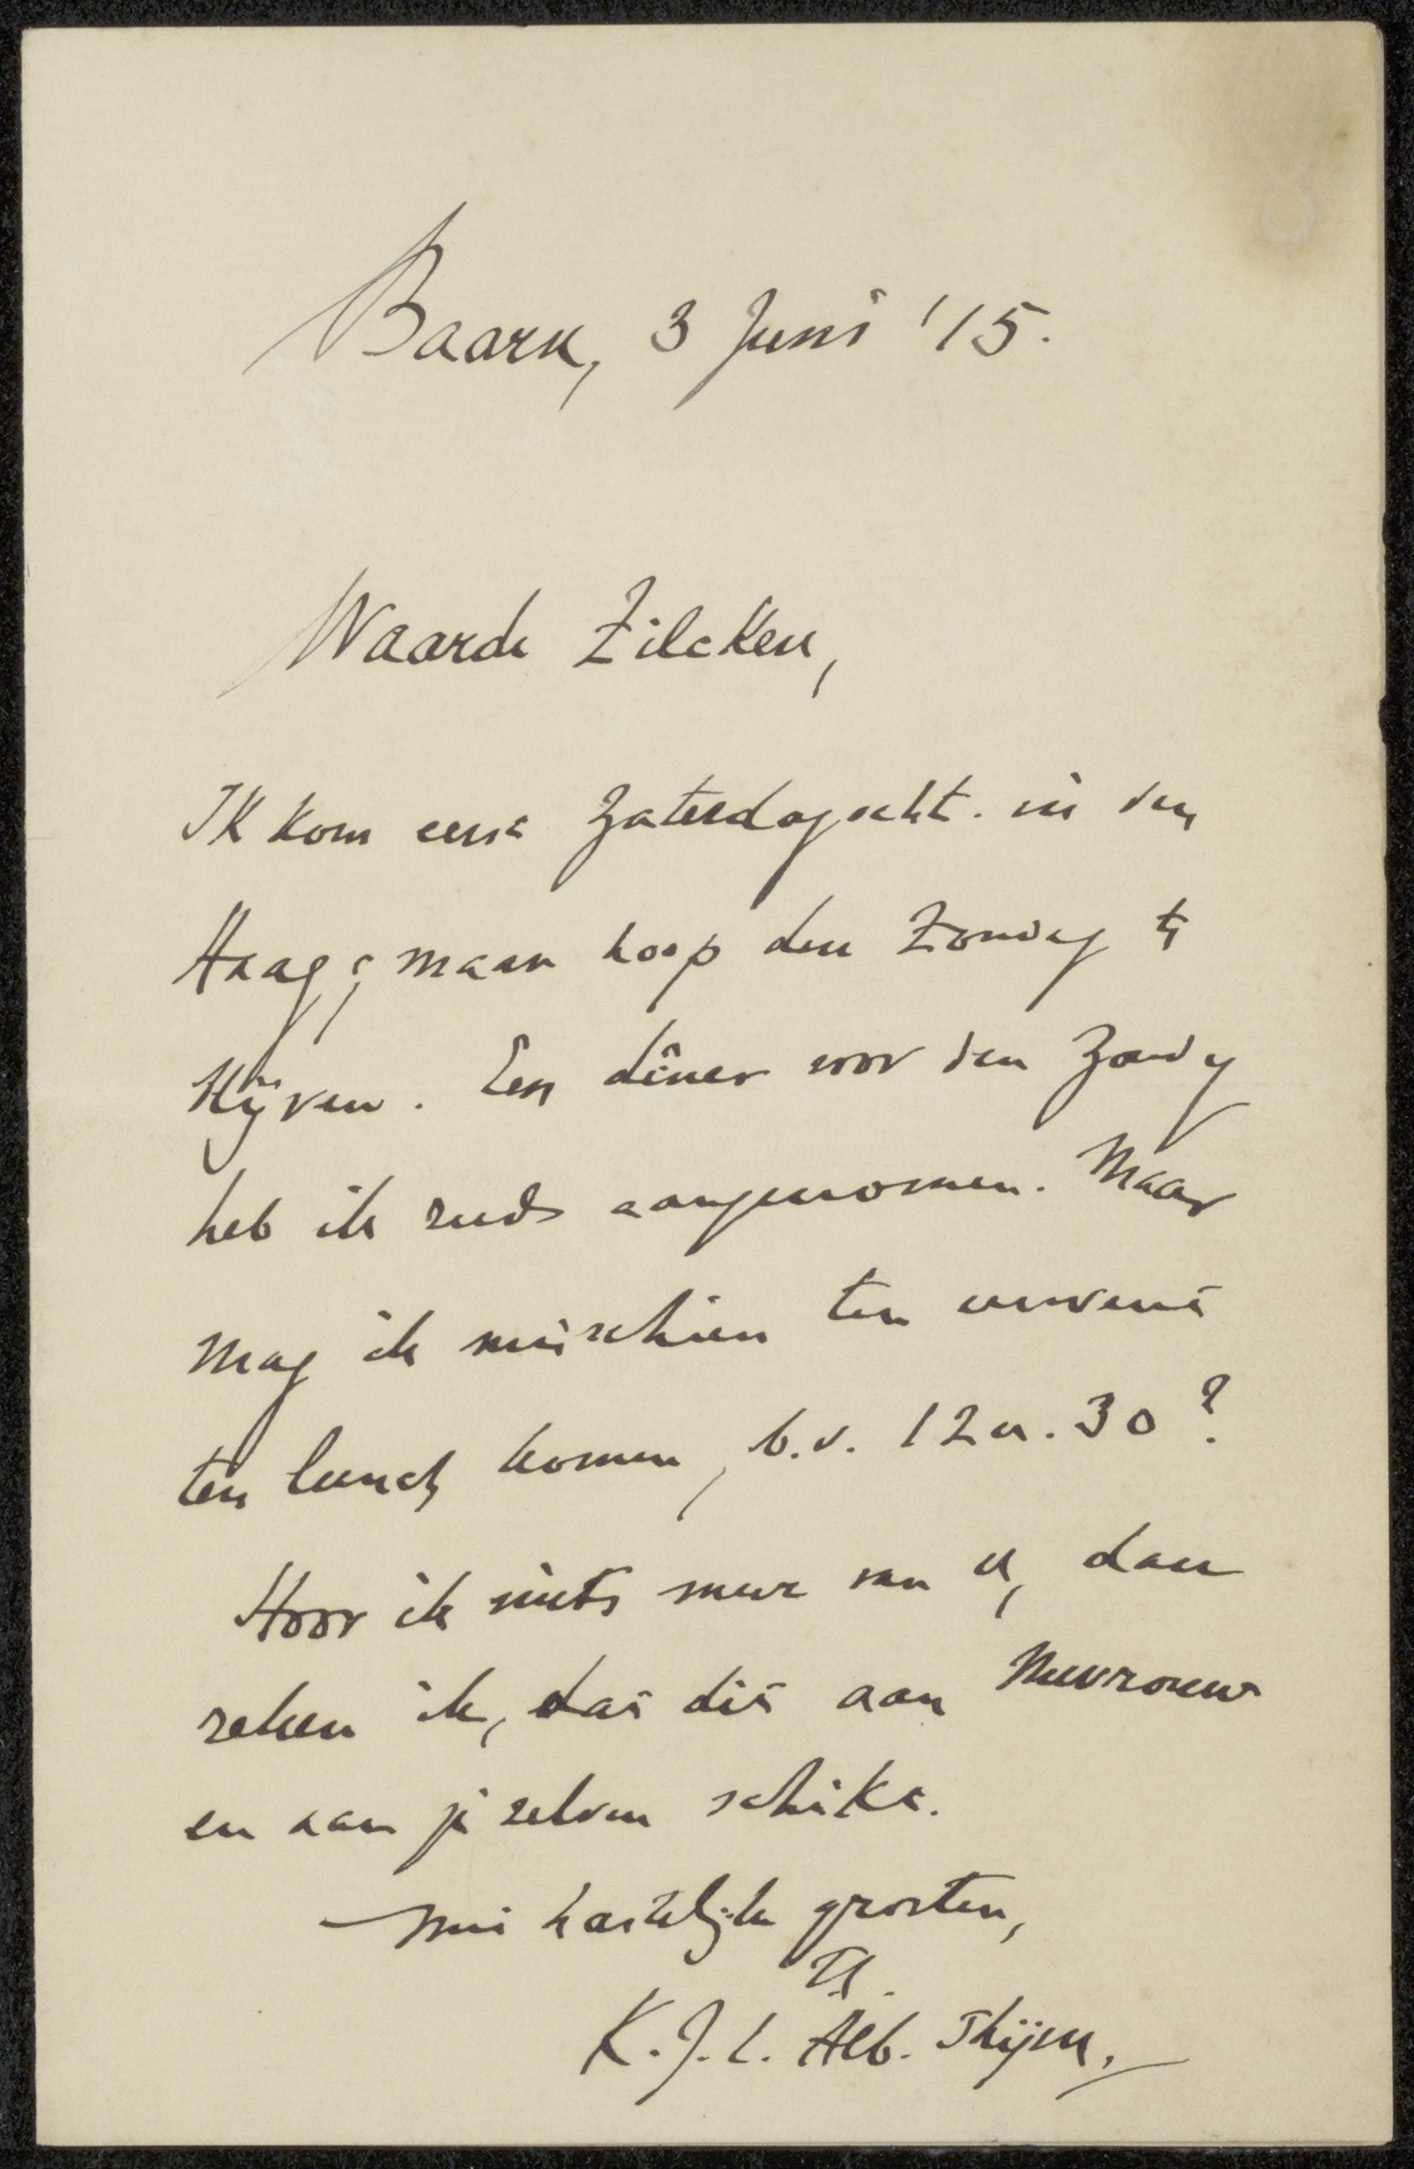 Baarn, 3 Juni '15.
Waarde Zilcken,
Ik kom eerst Zaterdagocht. in den
Haag; maar hoop den Zondag te
blijven. Een dîner voor den Zondag
heb ik reeds aangenomen. Maar
mag ik misschien ten uwent
ten lunch komen, b.v. 12 u. 30?
Hoor ik niets meer van U, dan
reken ik, dat dit aan Mevrouw
en aan je zelven schikt.
Met hartelijke groeten,
K. J. L. Alb. Thijm.